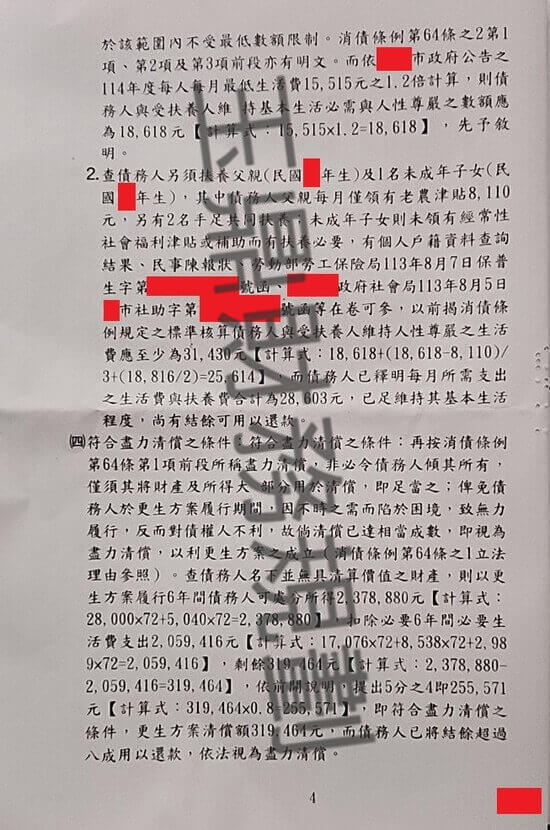 於該範圍內不受最低數額限制。消債條例第64條之2第1
項、第2項及第3項前段亦有明文。而依 市政府公告之
114年度每人每月最低生活費15,515元之1.2倍計算，則債
務人與受扶養人維 持基本生活必需與人性尊嚴之數額應
為18,618元【計算式：15,515x1.2=18,618】，先予敘
明。
2.查債務人另須扶養父親(民國 年生)及1名未成年子女(民
國 年生)，其中債務人父親每月僅領有老農津貼8,110
元，另有2名手足共同扶養，未成年子女則未領有經常性
社會福利津貼或補助而有扶養必要，有個人戶籍資料查詢
結果、民事陳報狀、勞動部勞工保險局113年8月7日保普
生字第 號函、 政府社會局113年8月5日
市社助字第 號函等在卷可參，以前揭消債條
例規定之標準核算債務人與受扶養人維持人性尊嚴之生活
費應至少為31,430元【計算式：18,618+(18,618-8,110)/
3+(18,816/2)=25,614】，而債務人已釋明每月所需支出
之生活費與扶養費合計為28,603元，已足維持其基本生活
程度，尚有結餘可用以還款。
㈣符合盡力清償之條件：符合盡力清償之條件：再按消債條例
第64條第1項前段所稱盡力清償，非必令債務人傾其所有，
僅須其將財產及所得大 部分用於清償，即足當之；俾免債
務人於更生方案履行期間，因不時之需而陷於困境，致無力
履行，反而對債權人不利，故倘清償已達相當成數，即視為
盡力清償，以利更生方案之成立（消債條例第64條之1立法
理由參照）。查債務人名下並無具清算價值之財產，則以更
生方案履行6年間債務人可處分所得2,378,880元【計算式：
28,000x72+5,040x72=2,378,880】，扣除必要6年間必要生
活費支出2,059,416元【計算式：17,076x72+8,538x72+2,98
9x72=2,059,416】，剩餘319,464元【計算式：2,378,880-
2,059,416=319,464】，依前開說明，提出5分之4即255,571
元【計算式：319,464x0.8=255,571】，即符合盡力清償之
條件，更生方案清償額319,464元，而債務人已將結餘超過
八成用以還款，依法視為盡力清償。
4